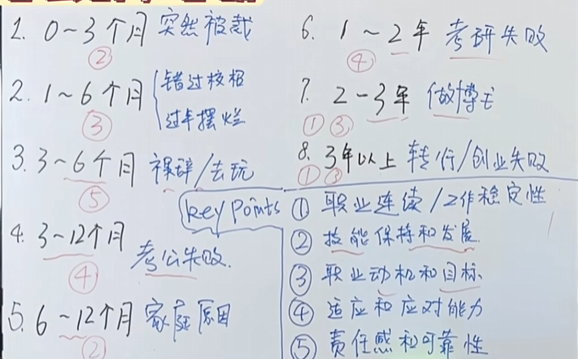 1. 0~3个月 突然被裁
②
2. 1~6个月 错过校招
过年摆烂
③
3. 3~6个月 裸辞/去玩
⑤
4. 3~12个月
考公失败.
④
5. 6~12个月 家庭原因
②
6. 1~2年 考研失败
④
7. 2~3年 做博主
① ③
8. 3年以上 转行/创业失败
① ③
key points
① 职业连续/工作稳定性
② 技能保持和发展
③ 职业动机和目标
④ 适应和应对能力
⑤ 责任感和可靠性